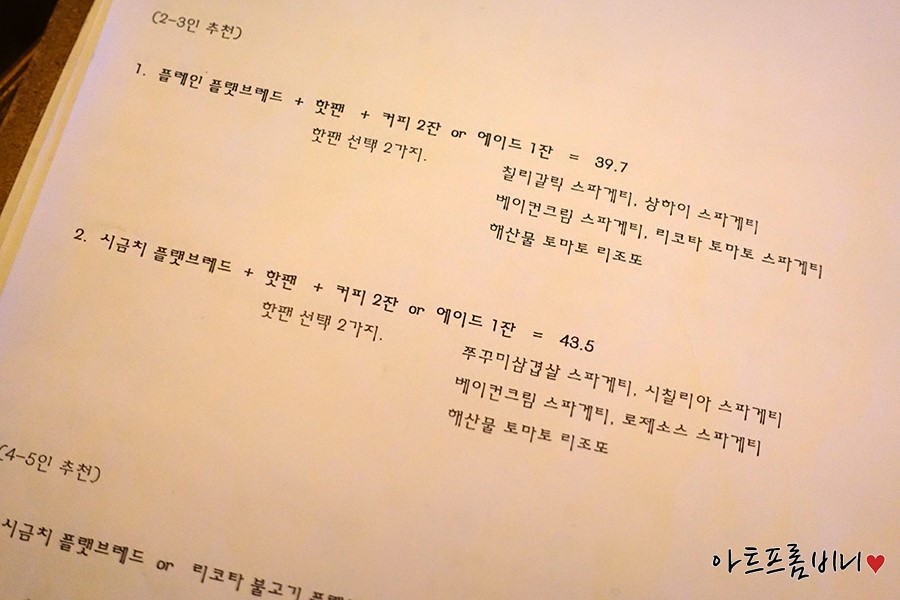 (2-3인 추천)
1. 플레인 플랫브레드 + 핫팬 + 커피 2잔 or 에이드 1잔 = 39.7
핫팬 선택 2가지.
칠리갈릭 스파게티, 상하이 스파게티
베이컨크림 스파게티, 리코타 토마토 스파게티
해산물 토마토 리조또
2. 시금치 플랫브레드 + 핫팬 + 커피 2잔 or 에이드 1잔 = 43.5
핫팬 선택 2가지.
쭈꾸미삼겹살 스파게티, 시칠리아 스파게티
베이컨크림 스파게티, 로제소스 스파게티
해산물 토마토 리조또
(4-5인 추천)
시금치 플랫브레드 or 리코타 불고기
아트프롬비니♥